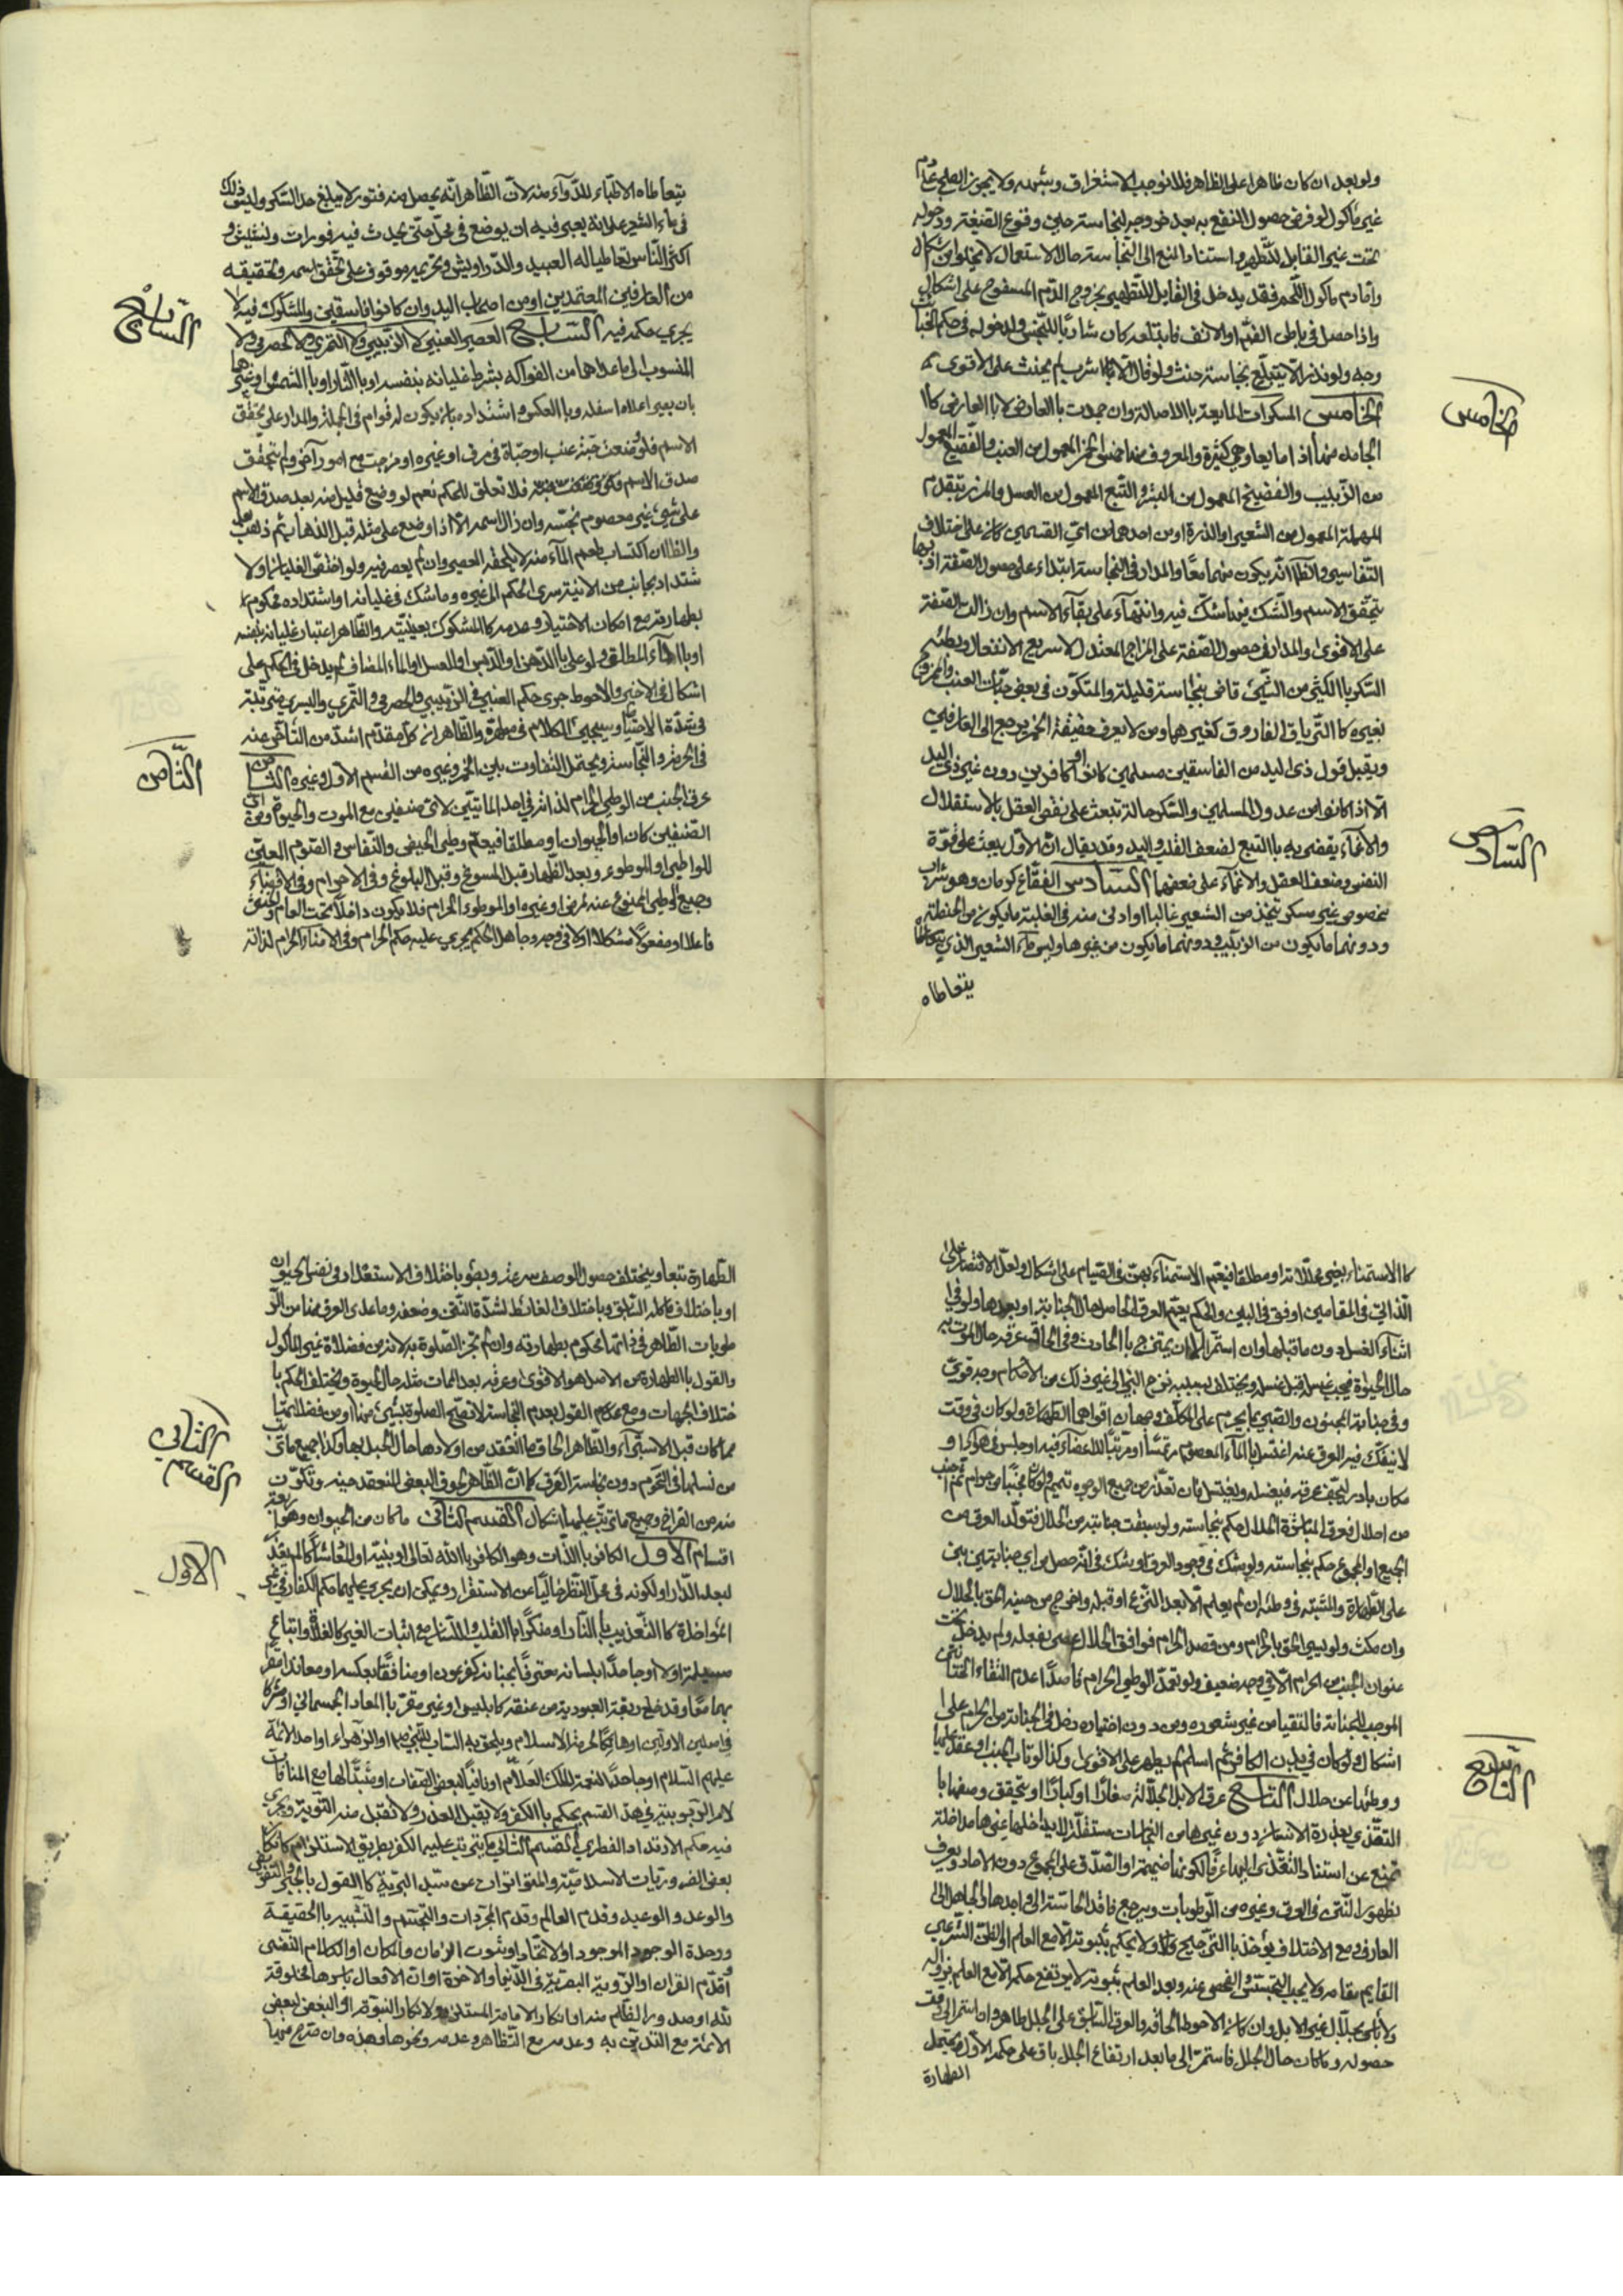 ولو بعد ان كان ظاهرا على الظاهر فلا نوجب الاستغراق وبشهد ولا يجوز
غير مأكول لو فرض حصول النفع به بعد خروجه لنجاسته حين وقوع الصيغة ودخوله
تحت غير القابل للتطهير واستناد المنع الى النجاسة حال الاستعمال لا يخلو من اشكال
وأما دم مأكول اللحم فقد يدخل في القابل للتطهير بخروج الدم المسفوح على اشكال
واذا حصل في باطن الفم او الانف فابتلعه كان شاربا للنجس ولدخوله في حكم الخبائث
وجه ولو نذر الا يبتلع نجاسة حنث ولو قال الا اشرب لم يحنث على الاقوى
الخامس المسكرات المايعة بالاصالة وان جمدت بالعارض لا بالعارض كا
الجامد منها اذا ماعا وهي كثيرة والمعروف منها الخمر المعمول من العنب والنقيع المعمول
من الزبيب والفضيخ المعمول من البسر والتبع المعمول من العسل والمزر بتقديم
المهملة المعمول من الشعير او الذرة او من احدهما من اي القسمين كان على اختلاف
التفاسير والظاهر انه يكون منهما معا والمدار في النجاسة ابتداء على حصول الصفة او
بتحقق الاسم والشك فيما شك فيه وانتهاء على بقاء الاسم وان زالت الصفة
على الاقوى والمدار في حصول الصفة على المزاج المعتدل لا سريع الانفعال وبطيئه
السكر بالكثير من الشيء قاض بنجاسة قليله والمتكون في بعض حبات العنب والممزوج
بغيره كالترياق الفاروق كغيرهما ومن لا يعرف حقيقة الخمر يرجع الى العارفين
ويقبل قول ذي اليد من الفاسقين مسلمين كانوا او كافرين دون غير ذي اليد
الا اذا كانوا من عدول المسلمين والسكر حالة تبعث على نقص العقل بالاستقلال
والاغماء يقضي به بالتبع لضعف القلب والبدن وقد يقال ان الاول يبعث على قوة
النفس وضعف العقل والاغماء على ضعفهما السادس الفقاع كرمان وهو شراب
مخصوص غير مسكر يتخذ من الشعير غالبا وادنى منه في الغلبة ما يكون من الحنطة
ودونهما ما يكون من الزبيب ودونهما ما يكون من غيرها وليس ماء الشعير الذي
يتعاطاه
الخامس
السادس
يتعاطاه الاطباء للدواء منه لان الظاهر انه يحصل منه فتور لا يبلغ حد السكر وليس ذلك
في ماء الشعير على انه يعتبر فيه ان يوضع في محل حتى يحدث فيه فورات ونشيش و
اكثر الناس تعاطيا له العبيد والدراويش وتحريمه موقوف على تحقق اسمه وتحقيقه
من العارفين المعتمدين او من اصحاب اليد وان كانوا فاسقين والمشكوك فيه لا
يجري حكمه فيه السابع العصير العنبي لا الزبيبي ولا التمري ولا الحصرمي ولا
المنسوب الى ما عداهما من الفواكه بشرط غليانه بنفسه او بالنار او بالشمس او غيرها
بان يصير اعلاه اسفله وبالعكس واشتداده بان يكون له قوام في الجملة والمدار على تحقق
الاسم فلو وضعت حبة عنب او حبات في مرق او غيره او مزجت مع امور آخر ولم يتحقق
صدق الاسم فلا تعلق للحكم نعم لو وضع قليل منه بعد صدق الاسم
على شيء غير معصوم نجسه وان زال اسمه الا اذا وضع على مثله قبل الذهاب ثم ذهب
والظاهر ان اكتساب طعم الماء منه لا يلحقه العصير وان لم يعصر فيه ولو اختص الغليان او لا
شتداد بجانب من الانية سرى الحكم الى غيره وما شك في غليانه او اشتداده محكوم
بطهارته مع امكان الاختبار وعدمه كالمشكوك بعينيته والظاهر اعتبار غليانه بنفسه
او بالماء المطلق ولو غلى بالدهن او الدبس او العسل او الماء المضاف لم يدخل في الحكم على
اشكال في الاخير والاحوط جرى حكم العنبي في الزبيبي والحصرمي والتمري والبسري مرتبة
في شدة الاحتياط وسيجيء الكلام في مطهره والظاهر ان كل متقدم اشد من المتأخر عنه
في الحرمة والنجاسة ويحتمل التفاوت بين الخمر وغيره من القسم الاول وغيره الثامن
عرق الجنب من الوطي الحرام لذاته في احد المأتيين لاي صنفين مع الموت والحيوة ومن اي
الصنفين كان او الحيوان او مطلقا فيعم وطي الحيض والنفاس والصوم المعين
للواطي او الموطوء وبعد الظهار قبل المسوغ وقبل البلوغ وفي الاحرام وفي الافضاء
وجميع الوطي الممنوع عنه لمرض او غيره او الموطوء الحرام فلا يكون داخلا تحت العام
فاعلا او مفعولا مشكلا او لا في وجه وجاهل الحكم يجري عليه حكم الحرام وفي الامناء الحرام لذاته
السابع
الثامن
كالاستمناء بغير محللاته او مطلقا فيعم الاستمناء بهن في الصيام على اشكال ولعل الاقتصار على
الذاتي في المقامين اوفق في البين والحكم يعم العرق الحاصل حال الجنابة او بعدها ولو في
اثناء الغسل دون ما قبلها وان استمر الا ان يمتزج بالحادث وفي الحاق عرقه حال الموت به
حال الحيوة فيجب غسله قبل غسله ويختلف بسببه نزح البئر الى غير ذلك من الاحكام وجه قوي
وفي جنابة المجنون والصبي بما يحرم على المكلف وجهان اقواهما الطهارة ولو كان في وقت
لا ينفك فيه العرق عنه اغتسل بالماء المعصوم مرتمسا او مرتبا للاعضاء فيه او جلس في هواء او
مكان بارد ليجف عرقه فيغسله ويغتسل فان تعذر من جميع الوجوه تيمم ولو كان مجنبا من حرام ثم اجنب
من احلال فعرق المتأخرة الحلال حكم بنجاسته ولو سبقت جنابته من الحلال فتولد العرق من
الجميع او المجموع حكم بنجاسته ولو شك في وجود العرق او شك في انه حصل من اي جنابتين بنى
على الطهارة والمشتبه في وطئه ان لم يعلم الا بعد النزع او قبله واخرج من حينه الحق بالحلال
وان مكث ولو يسيرا الحق بالحرام ومن قصد الحرام فوافق الحلال عصى بفعله ولم يدخل تحت
عنوان الجنب من الحرام الا في وجه ضعيف ولو تعمد الوطي الحرام قاصدا عدم التقاء الختانين
الموجب للجنابة فالتقيا من غير شعوره ومن دون اختياره دخل في الجنابة من الحرام على
اشكال ولو كان في بدن الكافر ثم اسلم لم يطهر على الاقوى وكذا لو تاب المجنب او عقد عليها
ووطئها عن حلال التاسع عرق الابل الجلالة صغارا او كبارا ويتحقق وصفها با
لتغذي بعذرة الانسان دون غيرها من النجاسات مستقلة لا يداخلها غيرها مداخلة
تمنع عن استناد التغذي اليها عرفا لكونها ضميمة او الصدق على المجموع دون الاحاد ويعرف
بظهور النتن في العرق وغيره من الرطوبات ويرجع فاقد الحاسة الى واجدها والجاهل الى
العارف ومع الاختلاف يؤخذ بالترجيح ولا يحكم بثبوته الا مع العلم او الظن الشرعي
القايم مقامه ولا يجب التجسس والفحص عنه وبعد العلم بثبوته لا يرتفع حكمه الا مع العلم بزواله
ولا بأس بجلال غير الابل وان كان الاحوط الحاقه والعرق السابق على الجلل طاهر وان استمر الى وقت
حصوله وما كان حال الجلل فاستمر الى ما بعد ارتفاع الجلل باق على حكمه الاول ويحتمل
الطهارة
التاسع
الطهارة تبعا ويختلف حصول الوصف سرعة وبطؤ باختلاف الاستعداد في نفس الحيوان
او باختلاف مأكله السابق وباختلاف الغائط لشدة النتن وضعفه وما عدى العرق منها من الر
طوبات الظاهر في ذاتها محكوم بطهارته وان لم تجز الصلوة به لانه من فضلات غير المأكول
والقول بالطهارة من الاصل هو الاقوى وعرقه بعد الممات مثله حال الحيوة ويختلف الحكم با
ختلاف الجهات ومع القول بعدم النجاسة لا تصح الصلوة بشيء منها او من فضلاتها
مما كان قبل الاستبراء والظاهر الحاق ما انعقد من اولادها حال الجلل بها وكذا جميع ما تي
من نسلها في التحريم دون نجاسة العرق كما ان الظاهر لحوق البعض المنعقد حينه وتكون
منه من الفراخ وجميع ما ترتب عليهما اشكال القسم الثاني ما كان من الحيوان وهو اربعة
اقسام الاول الكافر بالذات وهو الكافر بالله تعالى او بنبيه او المعاد
لبعد الدار او لكونه في محل النظر خاليا عن الاستقرار ويمكن ان يجري عليهما حكم الكفار في غير
المؤاخذة كالتعذيب بالنار او منكرا بالقلب واللسان مع اثبات الغير كالغلاة واتباع
مسيلمة او لا او جاحدا بلسانه معترفا بجنانه كفرعون او منافقا بعكسه او معاندا مقرا
بهما معا وقد خلع ربقة العبودية من عنقه كابليس او غير مقر بالمعاد الجسماني او مشركا
في اصلين الاولين او هاتكا لحرمة الاسلام ويلحق به الساب للنبي ص او الزهراء او احد الائمة
عليهم السلام او جاحدا لنعمة الملك العلام او نافيا لبعض الصفات او مثبتا لها مع المنافات
لامر الربوبية وفي هذا القسم يحكم بالكفر ولا يقبل العذر ولا تقبل منه التوبة ويجري
فيه حكم الارتداد الفطري القسم الثاني ما يترتب عليه الكفر بطريق الاستلزام كانكار
بعض الضروريات الاسلامية والمتواترات عن سيد البرية كالقول بالجبر والتفويض
والوعد والوعيد وقدم العالم وقدم المجردات والتجسم والتشبيه بالحقيقة
ووحدة الوجود او الموجود او الاتحاد او ثبوت الزمان والمكان او الكلام النفسي
او قدم القران او الرؤية البصرية في الدنيا والاخرة او ان الافعال باسرها مخلوقة
لله او صدور الظلم منه او انكار الامامة المستلزمة لانكار النبوة او البغض لبعض
الائمة مع التدين به وعدمه مع التظاهر وعدمه ونحوها وهذه وان صرح فيها
القسم الثاني
الاول